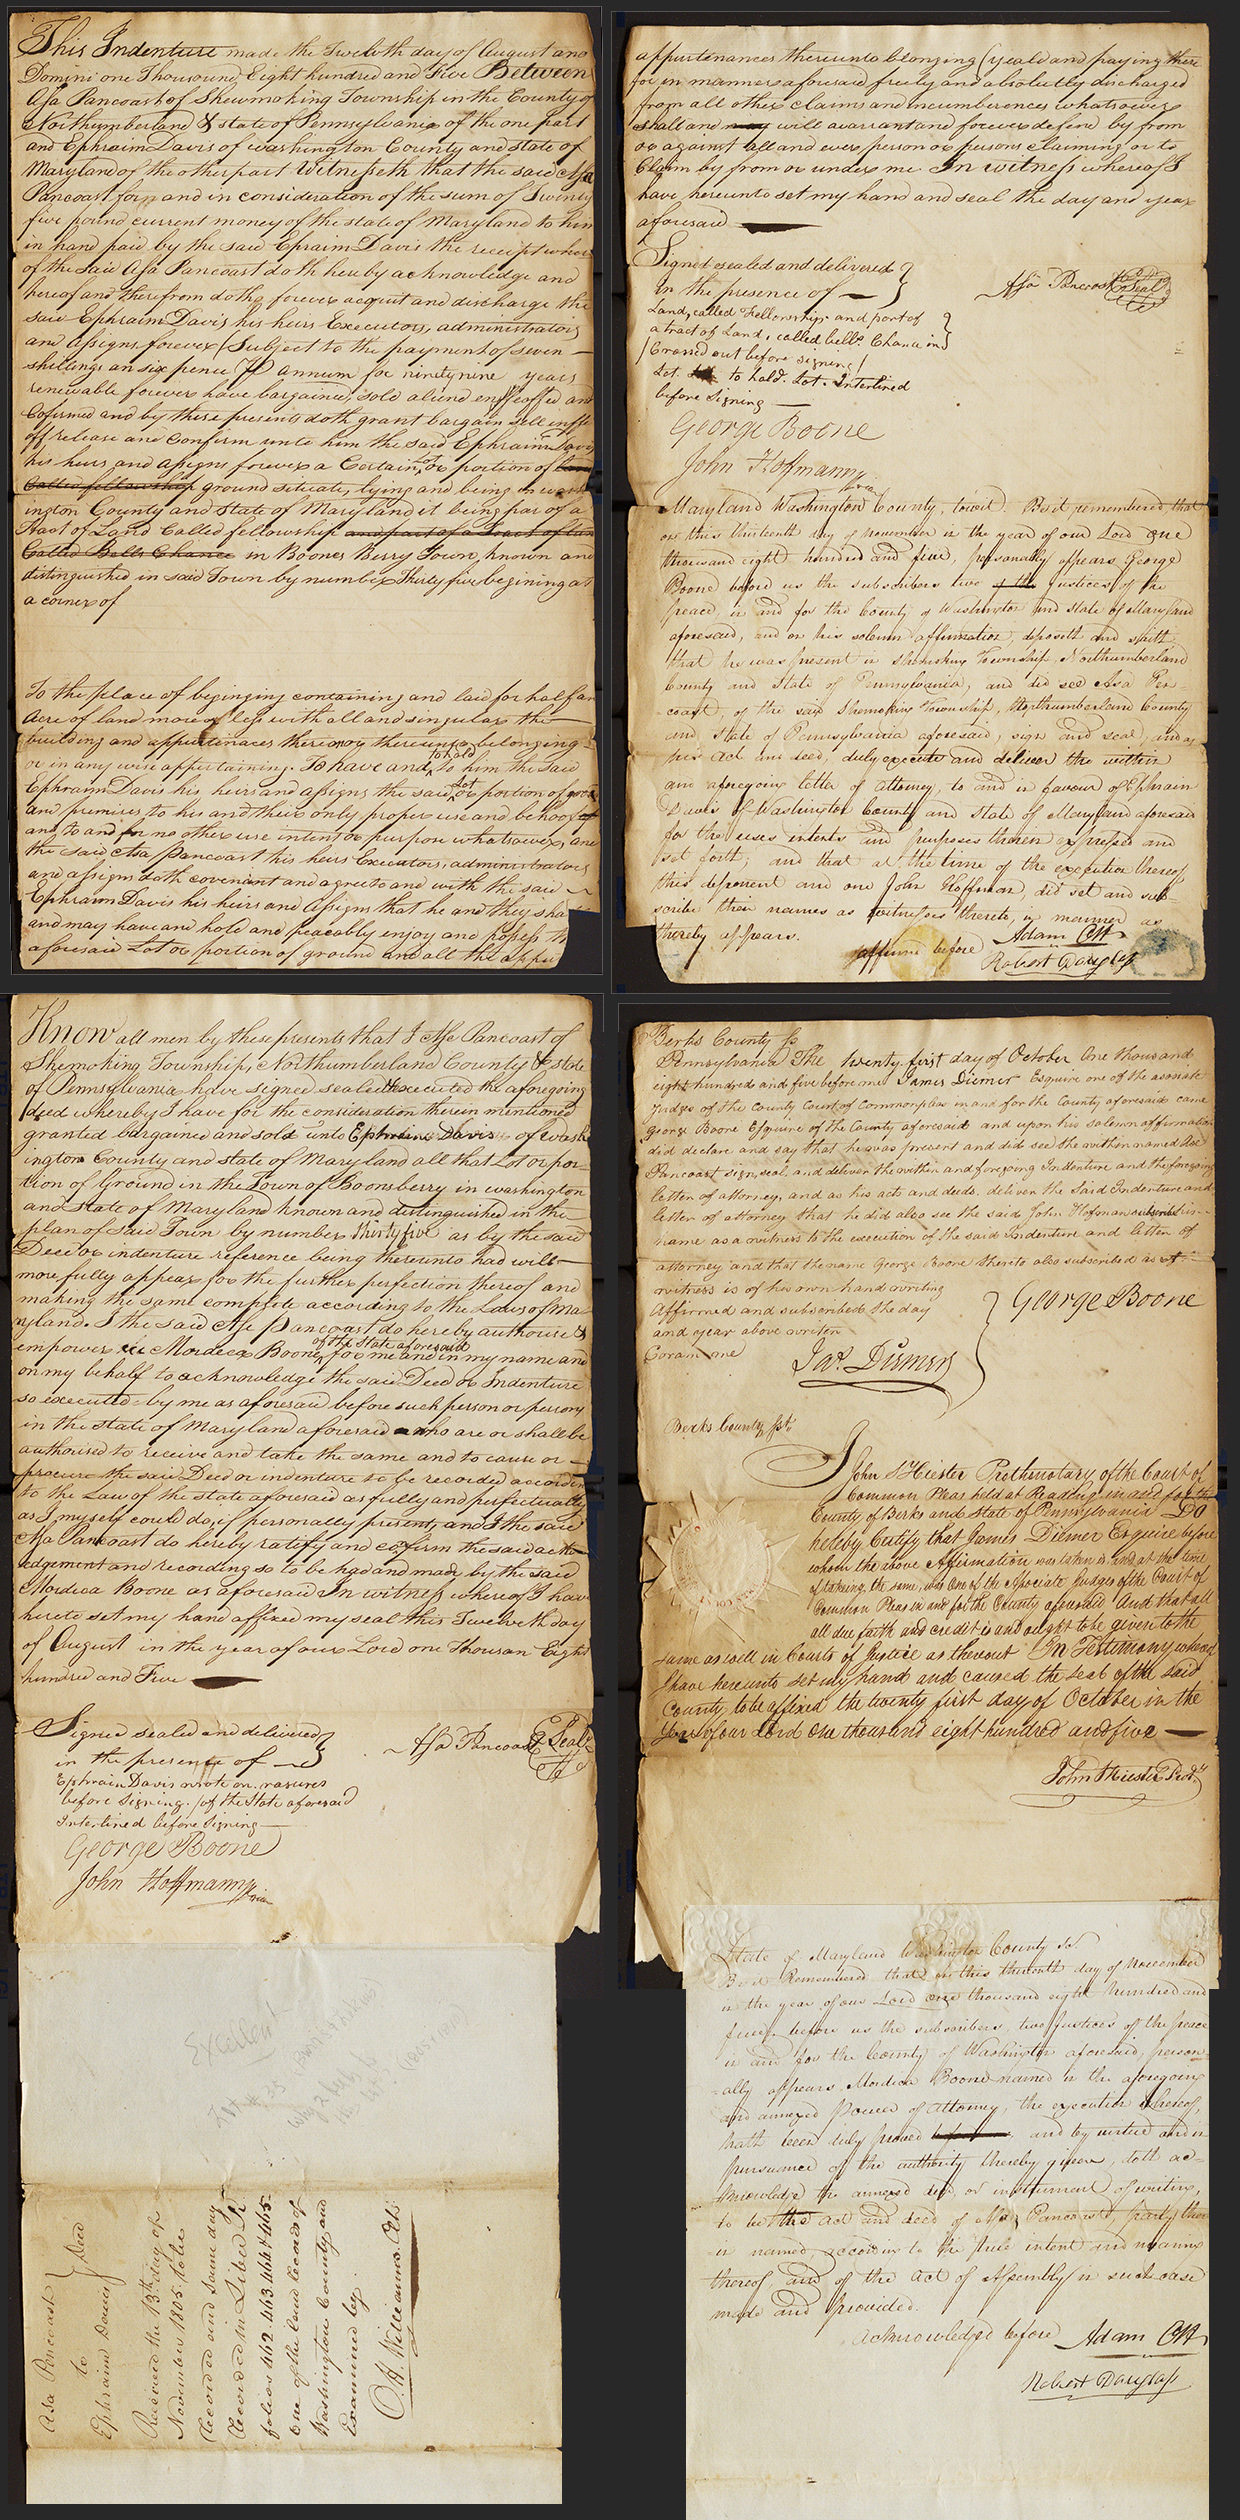 This Indenture made the Twelvth day of August ano
Domini one Thousand Eight hundred and Five Between
Asa Pancoast of Shewmoking Township in the County of
Northumberland & state of Pennsylvania of the one part
and Ephraim Davis of washington County and state of
Maryland of the other part Witnesseth that the said Asa
Pancoast for and in consideration of the sum of Twenty
five pound current money of the state of Maryland to him
in hand paid by the said Epraim Davis the receipt wher
of the said Asa Pancoast doth hereby acknowledge and
hereof and therefrom doth forever acquit and discharge the
said Ephraim Davis his heirs Executors, administrators
and assigns forever (Subject to the payment of seven
shillings an six pence P annum for ninetynine years
renewable forever have bargained, sold aliend enffeoffed and
Cofirmed and by these presents doth grant bargain sell enffe
off release and Confirm unto him the said Ephraim Davis
his heirs and assigns forever a Certain Lot or portion of land
Called fellowship ground situate, lying and being in wash
ington County and State of Maryland it being par of a
Tract of Land Called fellowship and part of a Tract of lan
Called Bells Chance in Boones Berry Town, known and
distinguished in said Town by number Thirty five begining at
a corner of
To the place of beginging containing and laid for half an
Acre of land more or less with all and singular the
building and appurtinaces thereon or thereunto belonging
or in any wise appertaining. To have and to hold to him the said
Ephraim Davis his heirs and assigns the said Lot or portion of groun
and premises to his and their only proper use and behoof
and to and for no other use intent or purpose whatsoever, and
the said Asa Pancoast his heirs Executors, administrators
and assigns doth covenant and agree to and with the said
Ephraim Davis his heirs and Assigns that he and they sha
and may have and hold and peacably enjoy and possess th
aforesaid Lot or portion of ground and all the appu
appurtenances thereunto belonging (yeald and paying there
for in manner aforesaid freely and absolutly discharged
from all other claims and incumberences whatsoever
shall and may will warrant and forever defend by from
or against all and ever person or persons claiming or to
Claim by from or under me In witness whereof I
have hereunto set my hand and seal the day and year
aforesaid
Signed sealed and delivered
in the presence of
Asa Pancoast Seal
Land, called Fellowship and part of
a tract of Land, called bells Chance in
(Crossed out before signing)
Lot. to hold. Lot. Interlined
before Signing
George Boone
John Hoffmann
Maryland Washington County, towit. Be it remembered that
on this thirteenth day of November in the year of our Lord one
thousand eight hundred and five, personally appears George
Boone before us the subscribers two of the justices of the
peace, in and for the County of Washington and State of Maryland
aforesaid, and on his solemn affirmation, deposeth and saith
that he was present in Shemoking Township, Northumberland
County and State of Pennsylvania, and did see Asa Pan-
coast, of the said Shemoking Township, Northumberland County
and State of Pennsylvania aforesaid, sign and seal, and as
his act and deed, duly execute and deliver the within
and aforegoing letter of attorney, to and in favour of Ephraim
Davis of Washington County and State of Maryland aforesaid
for the uses intents and purposes therein expressed and
set forth; and that at the time of the execution thereof
this deponent and one John Hoffman, did set and sub-
scribe their names as witnesses thereto, in manner as
thereby appears.
affirmed before
Adam Ott
Robert Douglass
Know all men by these presents that I Asa Pancoast of
Shemoking Township, Northumberland County & state
of Pennsylvania have signed sealed & executed the aforegoing
deed whereby I have for the consideration therein mentioned
granted bargained and sold unto Ephraim Davis of Wash
ington County and state of Maryland all that Lot or por-
tion of Ground in the Town of Boonsberry in washington
and state of Maryland known and distinguished in the
plan of said Town by number thirty five as by the said
Deed or indenture reference being thereunto had will
more fully appear for the further perfection thereof and
making the same complete according to the Laws of Ma
ryland. I the said Asa Pancoast do hereby authorise &
empower Mordica Boone of the State aforesaid for me and in my name and
on my behalf to acknowledge the said Deed or Indenture
so executed by me as aforesaid before such person or persons
in the state of Maryland aforesaid who are or shall be
authorised to receive and take the same and to cause or
procure the said Deed or indenture to be recorded accordin
to the Law of the state aforesaid as fully and perfectually
as I myself could do, if personally present, and I the said
Asa Pancoast do hereby ratify and cofirm the said ackn
edgement and recording so to be had and made by the said
Mordica Boone as aforesaid In witness whereof I have
hereto set my hand affixed my seal this Twelveth day
of August in the year of our Lord one Thousan Eight
hundred and Five
Signed sealed and delivered
in the presence of
Asa Pancoast Seal
Ephraim Davis wrote on rasures
before Signing. / of the State aforesaid
Interlined before Signing
George Boone
John Hoffmann
Berks County ss
Pennsylvania The twenty first day of October One thousand
eight hundred and five before me James Diemer Esquire one of the assosiate
Judges of the County Court of Common pleas in and for the County aforesaid came
George Boone Esquire of the County aforesaid and upon his solemn affirmation
did declare and say that he was present and did see the within named Asa
Pancoast sign, seal, and deliver the within and foregoing Indenture and the foregoing
letter of attorney, and as his acts and deeds. deliver the said Indenture and
letter of attorney that he did also see the said John Hofman subscribe his
name as a witness to the execution of the said Indenture and letter of
attorney and that the name George Boone thereto also subscribed as a
witness is of his own hand writing
Affirmed and subscribed the day
and year above writen
Coram me
George Boone
Jas. Diemer
Berks County sst.
I John S Hiester Prothonotary of the Court of
Common Pleas held at Reading in and for the
County of Berks and State of Pennsylvania Do
hereby Certify that James Diemer Esquire before
whom the above Affirmation was taken is, and at the time
of taking the same, was One of the Associate Judges of the Court of
Common Pleas in and for the County aforesaid And that all
due faith and credit is and ought to be given to the
same as well in Courts of Justice as thereout In Testimony whereof
I have hereunto set my hand and caused the seal of the said
County, to be affixed the twenty first day of October in the
Year of our Lord One thousand eight hundred and five
John S Hiester Prot.
Excellent
Lot # 35
Asa Pancoast
to
Ephraim Davis
Deed
Received the 13th day of
November 1805 to be
Recorded and same day
Recorded in Liber R
folios 462. 463. 464 & 465
One of the land Records of
Washington County and
Examined by
O. H. Williams. Clk
State of Maryland Washington County Sct.
Be it Remembered that on this thirteenth day of November
in the year of our Lord one thousand eight hundred and
five, before us the subscribers, two Justices of the peace
in and for the County of Washington aforesaid, person-
ally appears Mordica Boone named in the aforegoing
and annexed power of attorney, the execution whereof,
hath been duly proved and by virtue and in
pursuance of the authority thereby given, doth ac-
knowledge the annexed deed or instrument of writing,
to be the act and deed of Asa Pancoast, party there
in named, according to the true intent and meaning
thereof, and of the act of Assembly in such case
made and provided.
Acknowledged before
Adam Ott
Robert Douglass